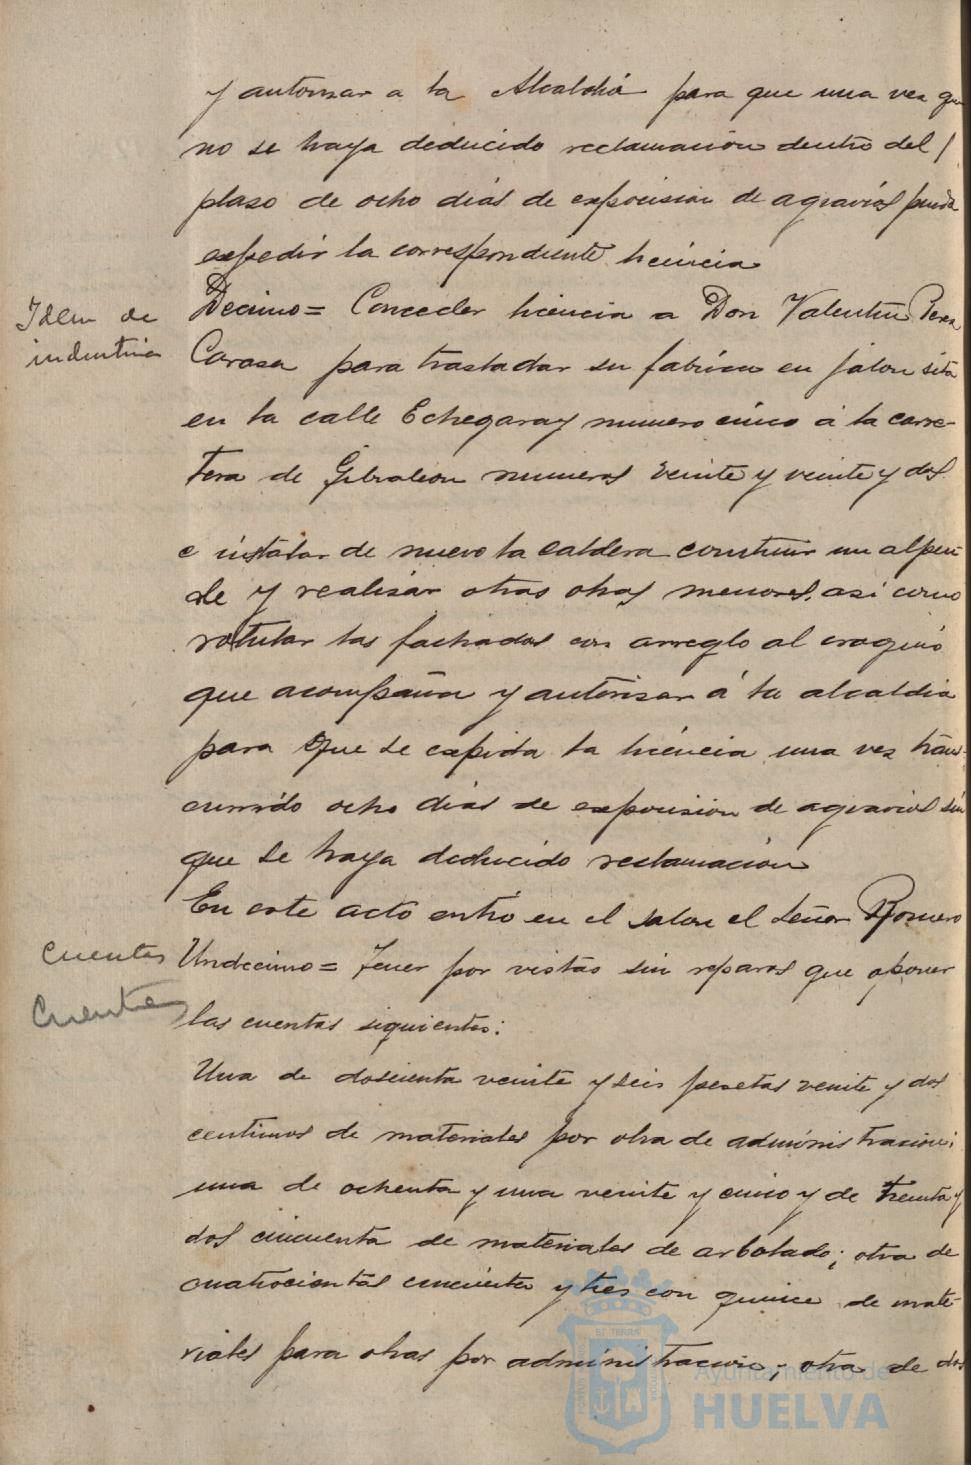 y autorisar a la Alcaldia para que una vez que
no se haya deducido reclamacion dentro del
plaso de ocho dias de exposision de agravios pueda
expedir la correspondiente licencia
Idem de
industria
Decimo= Conceder licencia a Don Valentin Perez
Carasa para trasladar su fabrica en jabon sita
en la calle Echegaray numero cinco á la carre-
tera de Gibraleon numeros veinte y veinte y dos
e instalar de nuevo la caldera construir un alpen
de y realisar otras obras menores, asi como
rotular las fachadas con arreglo al croquis
que acompaña y autorisar á la alcaldia
para que se expida la licencia una vez trans-
currido ocho dias de exposision de agravios sin
que se haya deducido reclamacion
En este acto entró en el salon el señor Romero
Cuentas
Undecimo= Tener por vistas sin reparos que oponer
Cuentas
las cuentas siguientes:
Una de doscienta veinte y seis pesetas veinte y dos
centimos de materiales por obra de administracion;
una de ochenta y una veinte y cinco y de treinta y
dos cincuenta de materiales de arbolado; otra de
cuatrocientas cincuenta y tres con quince de mate-
riales para obras por administracion; otra de dos
Ayuntamiento de
HUELVA